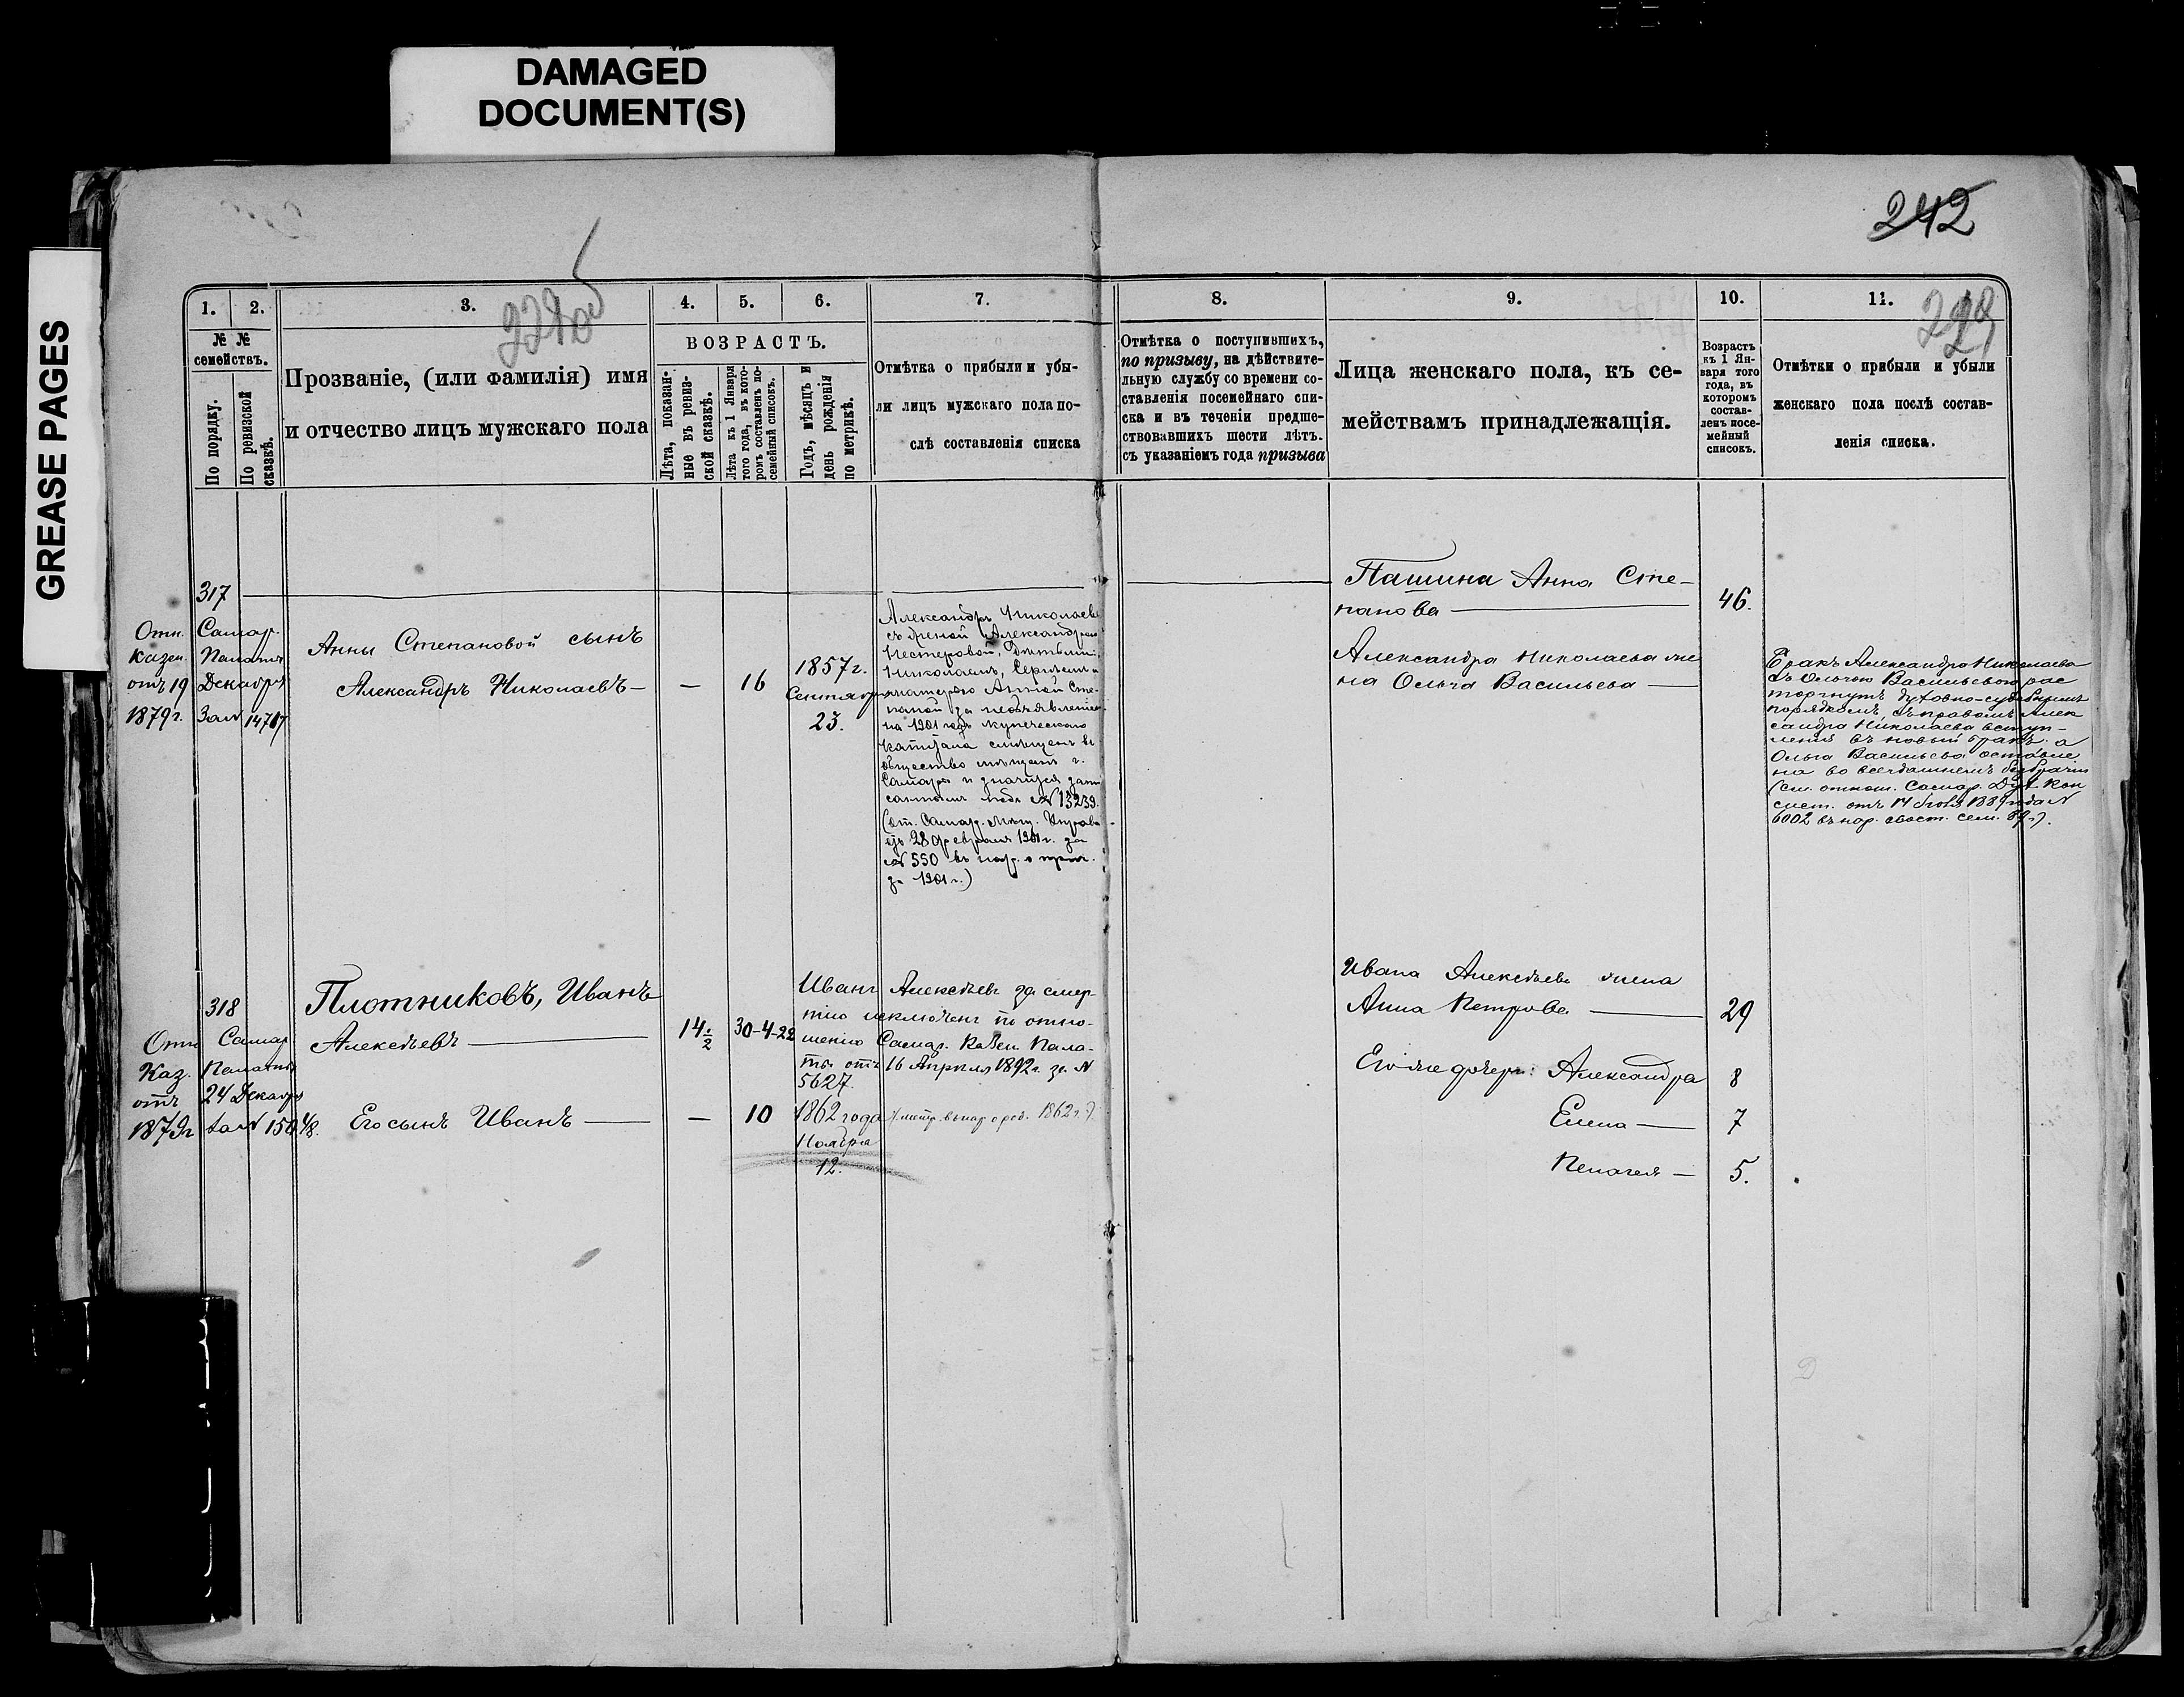 DAMAGED
DOCUMENT(S)
GREASE PAGES
242
1.
2.
3.
4.
5.
6.
7.
8.
9.
10.
11.
№ №
семействъ.
По порядку.
По ревизской
сказкѣ.
Прозваніе, (или фамилія) имя
и отчество лицъ мужскаго пола
ВОЗРАСТЪ.
Лѣта, показан-
ные въ ревиз-
ской сказкѣ.
Лѣта къ 1 Января
того года, въ кото-
ромъ составленъ по-
семейный списокъ.
Годъ, мѣсяцъ и
день рожденія
по метрикѣ.
Отмѣтка о прибыли и убы-
ли лицъ мужскаго пола по-
слѣ составленія списка
Отмѣтка о поступившихъ,
по призыву, на дѣйствите-
льную службу со времени со-
ставленія посемейнаго спи-
ска и въ теченіи предше-
ствовавшихъ шести лѣтъ.
съ указаніемъ года призыва
Лица женскаго пола, къ се-
мействамъ принадлежащія.
Возрастъ
къ 1 Ян-
варя того
года, въ
которомъ
состав-
ленъ посе-
мейный
списокъ.
Отмѣтки о прибыли и убыли
женскаго пола послѣ состав-
ленія списка.
317
Отн. Самар.
Казен. Палаты
отъ 19 Декабря
1879 г. за №
Анны Степановой сынъ
Александръ Николаевъ — — 16
1857 г.
Сентября
23.
Александръ Николаевъ
съ женой Александрою
Нестеровой, дѣтьми:
Николаемъ, Сергѣемъ и
матерью Анной Сте-
пановой за необъявленіемъ
на 1901 годъ купеческаго
капитала
общество мѣщанъ г.
Самары и значится
подъ № 13239.
(от. Самар. Мѣщ. Управы
28 февраля 1901 г. за
№ 550 въ нар. о
за 1901 г.)
Пашина Анна Сте-
панова — 46.
Александра Николаева же
на Ольга Васильева —
Бракъ Александра Николаева
съ Ольгою Васильевою рас
торгнутъ духовно-судебнымъ
порядкомъ, съ правомъ Алек
сандра Николаева вступ-
ленія въ новый бракъ, а
Ольга Васильева оставле
на во всегдашнемъ безбрачіи
(см. отнош. Самар. Дух. Кон
сист. отъ 14 1889 года №
6002 въ нар. сем. 89 г.).
318
Отн. Самар.
Каз. Палаты
отъ 24 Декабря
1879 г за №
Плотниковъ, Иванъ
Алексѣевъ — 14½ 30-4-22
Иванъ Алексѣевъ за смер-
тію исключенъ по отно-
шенію Самар. Казен. Пала-
ты отъ 16 Апрѣля 1892 г. за №
5627.
Его сынъ Иванъ — — 10
1862 года
Ноября
12.
(метр. въ нар о род. 1862 г.).
Ивана Алексѣева жена
Анна Петрова — 29
Его же дочери: Александра 8
Елена — 7
Пелагея — 5.